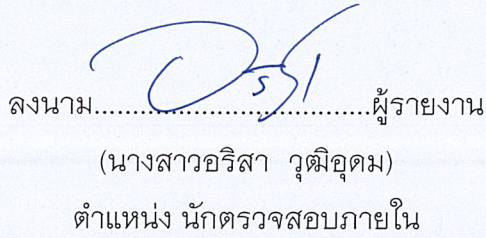 ลงนาม....................................ผู้รายงาน
(นางสาวอริสา วุฒิอุดม)
ตำแหน่ง นักตรวจสอบภายใน